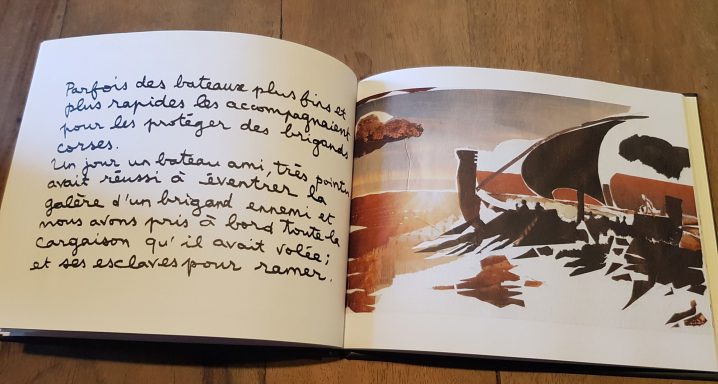 Parfois des bateaux plus fins et
plus rapides les accompagnaient
pour les protéger des brigands
corses.
Un jour un bateau ami, très pointu,
avait réussi à éventrer la
galère d'un brigand ennemi et
nous avons pris à bord toute la
cargaison qu'il avait volée ;
et ses esclaves pour ramer.